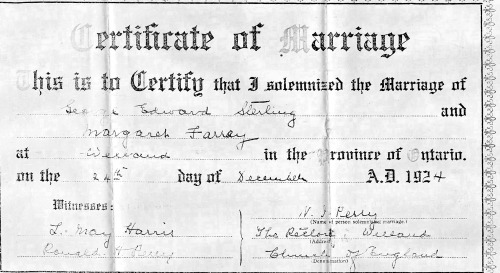 Certificate of Marriage
This is to Certify that I solemnized the Marriage of
George Edward Sterling and
Margaret Farray
at Welland in the Province of Ontario.
on the 24th day of December A.D. 1924
Witnesses:
N. I. Perry
(Name of person solemnizing marriage.)
L. May Harris
The Rectory Welland
(Address)
Ronald H Perry
Church of England
(Denomination)